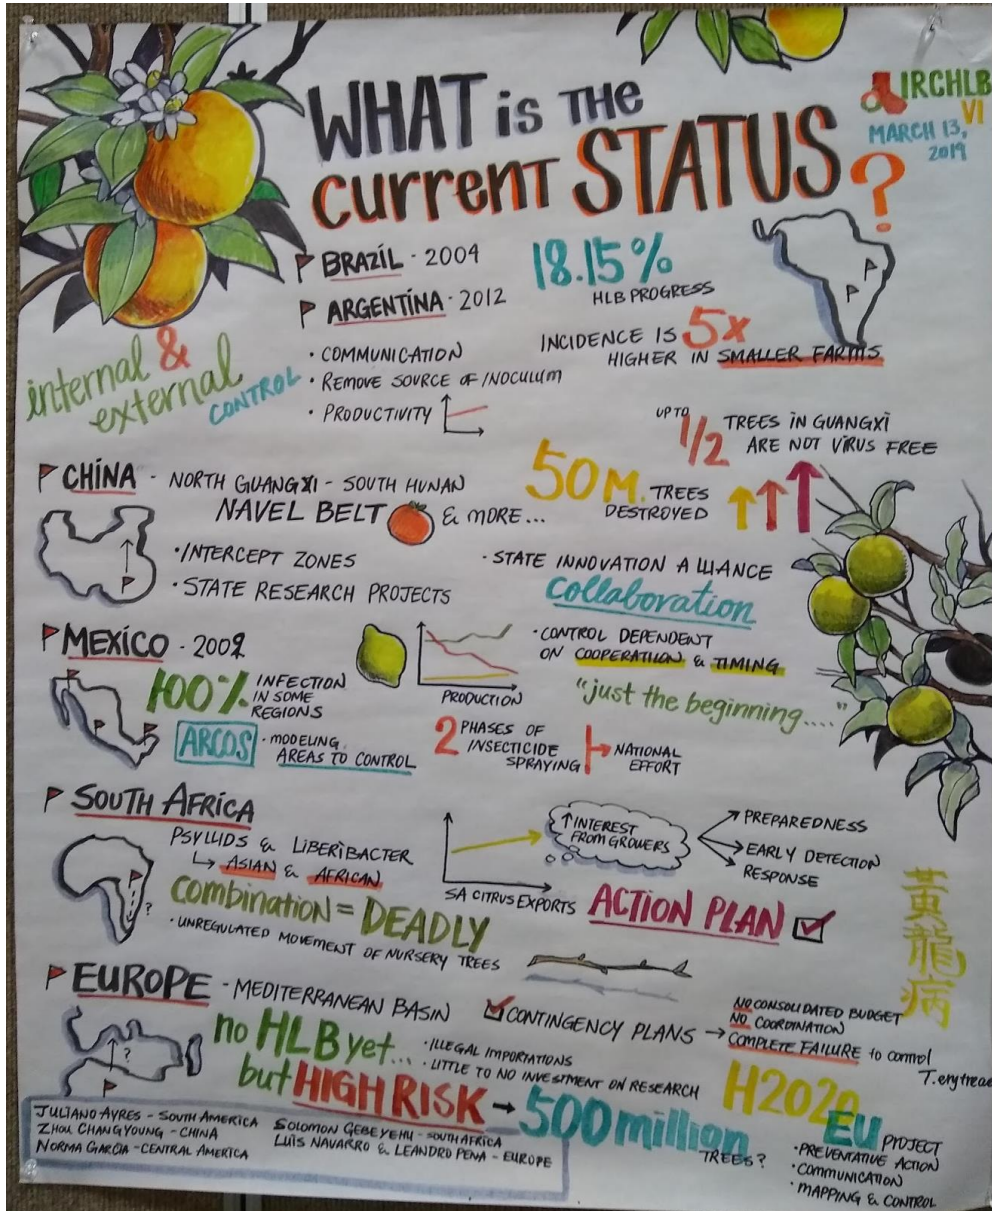 WHAT is THE
current STATUS?
IRCHLB
VI
MARCH 13,
2019
BRAZIL - 2004
ARGENTINA - 2012
18.15%
HLB PROGRESS
INCIDENCE IS 5x
HIGHER IN SMALLER FARMS
internal &
external
CONTROL
• COMMUNICATION
• REMOVE SOURCE OF INOCULUM
• PRODUCTIVITY
UP TO 1/2 TREES IN GUANGXI
ARE NOT VIRUS FREE
CHINA - NORTH GUANGXI - SOUTH HUNAN
NAVEL BELT & MORE...
50 M. TREES
DESTROYED
• INTERCEPT ZONES
• STATE RESEARCH PROJECTS
• STATE INNOVATION ALLIANCE
Collaboration
MEXICO - 2009
100% INFECTION
IN SOME
REGIONS
ARCOS
• MODELING
AREAS TO CONTROL
PRODUCTION
• CONTROL DEPENDENT
ON COOPERATION & TIMING
"just the beginning...."
2 PHASES OF
INSECTICIDE
SPRAYING
NATIONAL
EFFORT
SOUTH AFRICA
PSYLLIDS & LIBERIBACTER
ASIAN & AFRICAN
combination = DEADLY
• UNREGULATED MOVEMENT OF NURSERY TREES
?
SA CITRUS EXPORTS
↑ INTEREST
FROM GROWERS
PREPAREDNESS
EARLY DETECTION
RESPONSE
ACTION PLAN
黃龍病
EUROPE - MEDITERRANEAN BASIN
?
no HLB yet...
but HIGH RISK → 500 million
TREES?
• ILLEGAL IMPORTATIONS
• LITTLE TO NO INVESTMENT ON RESEARCH
CONTINGENCY PLANS →
NO CONSOLIDATED BUDGET
NO COORDINATION
COMPLETE FAILURE to control
T. erytreae
H2020
EU PROJECT
• PREVENTATIVE ACTION
• COMMUNICATION
• MAPPING & CONTROL
JULIANO AYRES - SOUTH AMERICA
ZHOU CHANGYOUNG - CHINA
NORMA GARCIA - CENTRAL AMERICA
SOLOMON GEBEYEHU - SOUTH AFRICA
LUIS NAVARRO & LEANDRO PENA - EUROPE